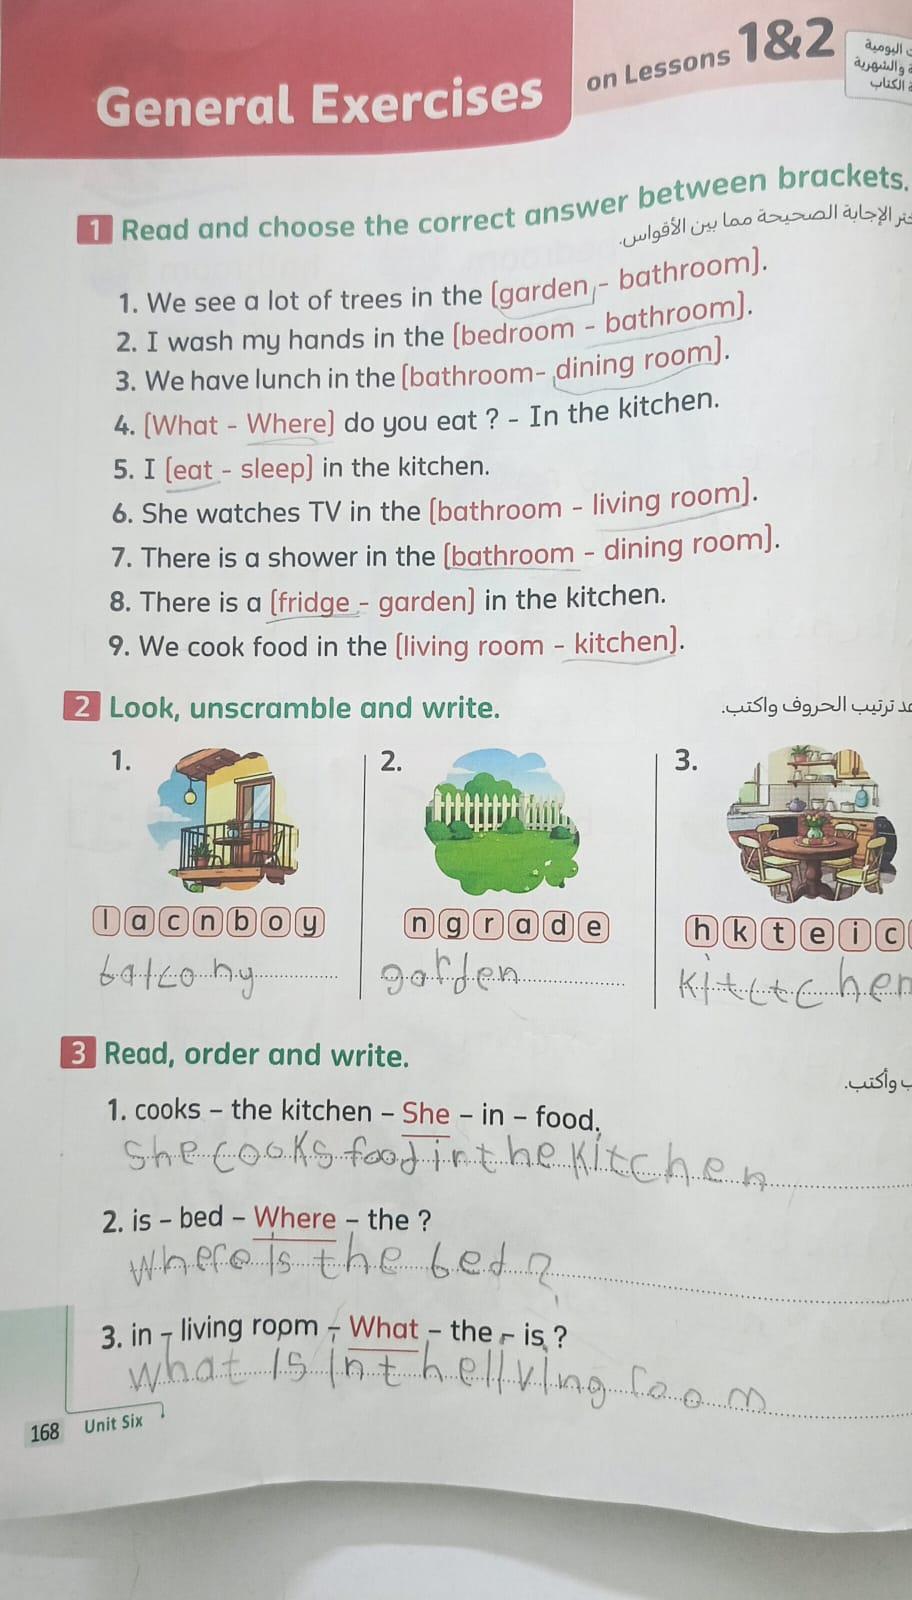 General Exercises on Lessons 1&2
اليومية
والشهرية
الكتاب
1 Read and choose the correct answer between brackets.
الإجابة الصحيحة مما بين الأقواس.
1. We see a lot of trees in the (garden - bathroom).
2. I wash my hands in the (bedroom - bathroom).
3. We have lunch in the (bathroom- dining room).
4. (What - Where) do you eat ? - In the kitchen.
5. I (eat - sleep) in the kitchen.
6. She watches TV in the (bathroom - living room).
7. There is a shower in the (bathroom - dining room).
8. There is a (fridge - garden) in the kitchen.
9. We cook food in the (living room - kitchen).
2 Look, unscramble and write.
ترتيب الحروف واكتب.
1. 2. 3.
l a c n b o y n g r a d e h k t e i c
balcony garden
3 Read, order and write.
وأكتب.
1. cooks – the kitchen – She – in – food.
She cooks food in the kitchen
2. is – bed – Where – the ?
where is the bed ?
3. in – living room – What – the – is ?
what is in the living room
168 Unit Six